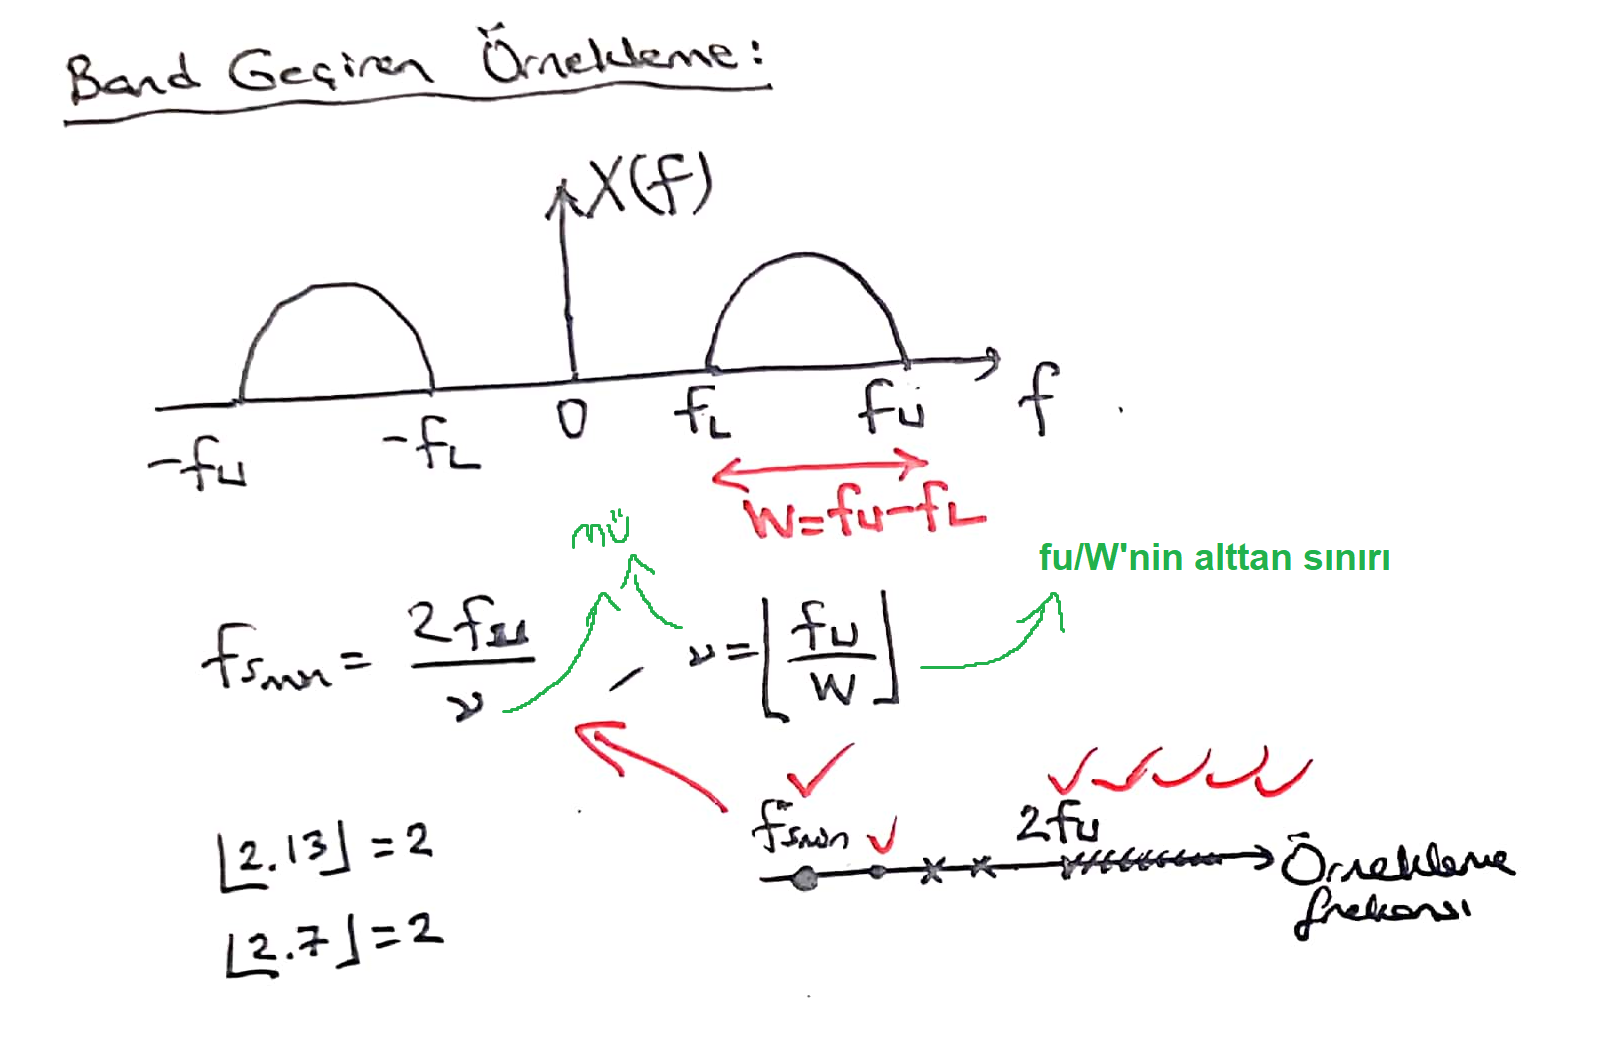 Band Geçiren Örnekleme:
X(f)
-fu -fL 0 fL fu f
W=fu-fL
mü
fu/W'nin alttan sınırı
fsmin = 2fu / ν , ν = ⌊fu / W⌋
fsmin 2fu
Örnekleme
frekansı
⌊2.13⌋ = 2
⌊2.7⌋ = 2